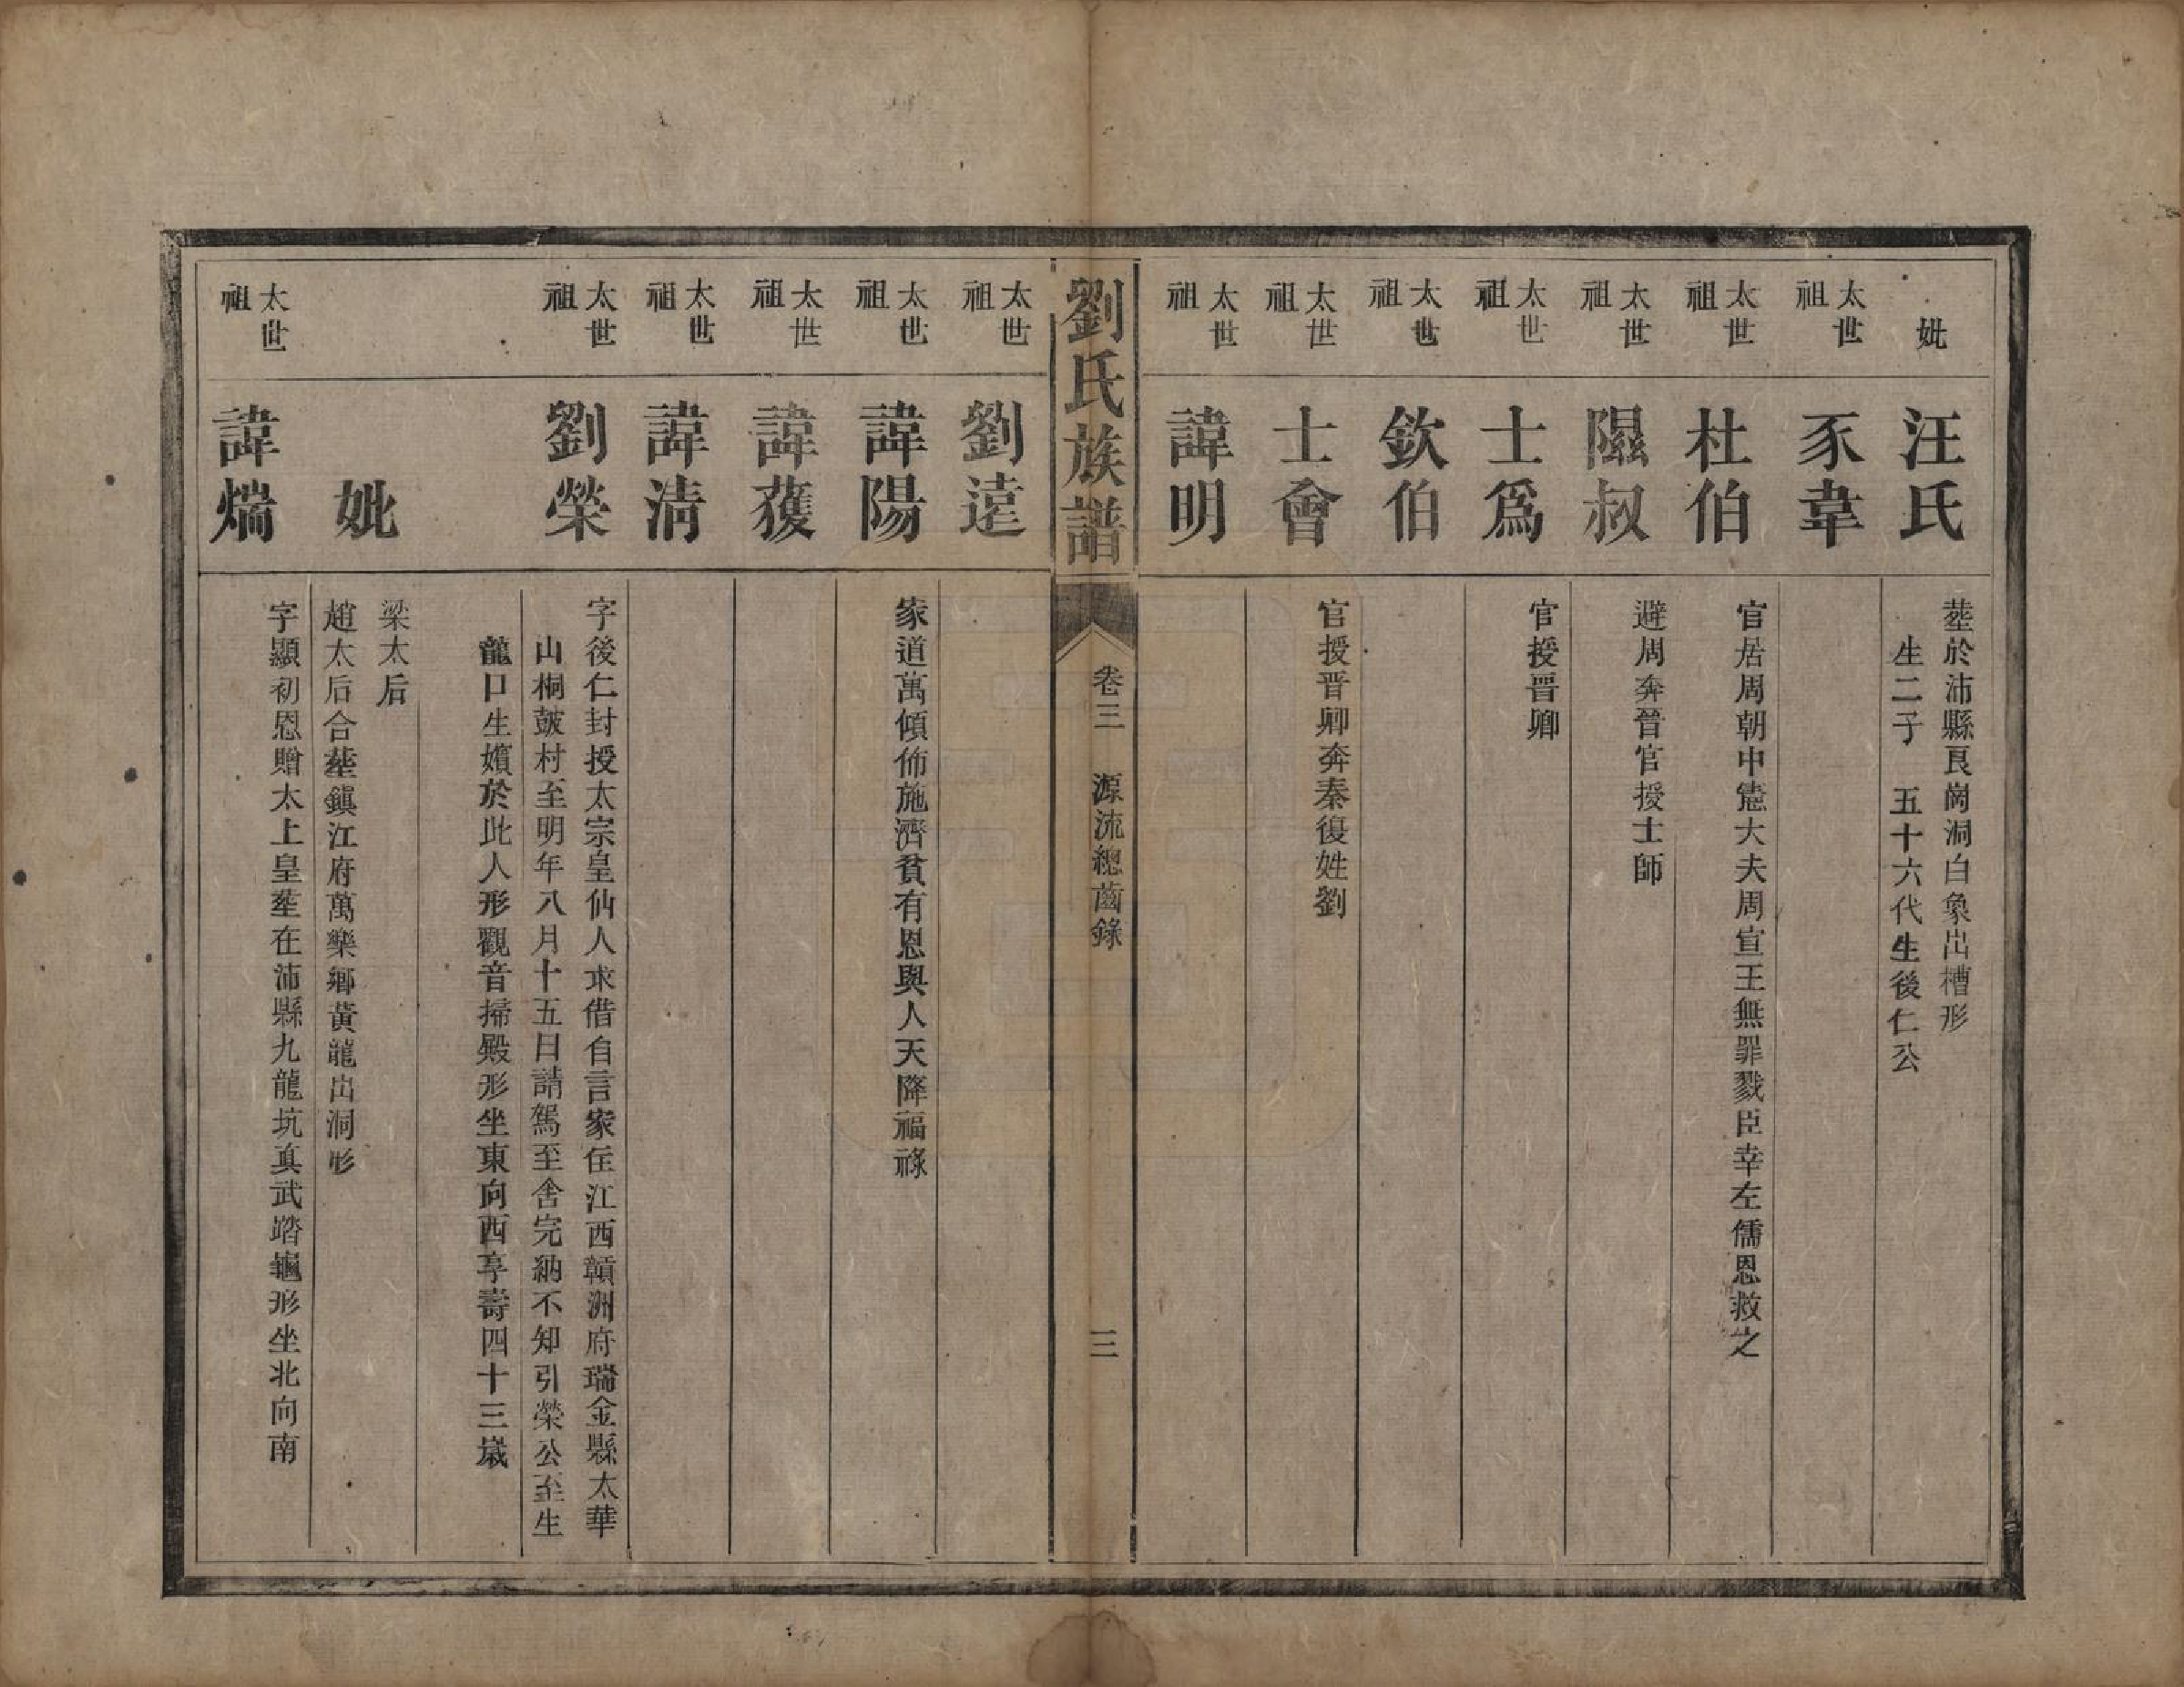 妣 汪氏
塟於沛縣艮崗洞白象出槽形
生二子 五十六代生後仁公
太世祖 豕韋
太世祖 杜伯
官居周朝中憲大夫周宣王無罪戮臣幸左儒恩救之
太世祖 隰叔
避周奔晉官授士師
太世祖 士爲
官授晋卿
太世祖 欽伯
太世祖 士會
官授晋卿奔秦復姓劉
太世祖 諱明
劉氏族譜 卷三 源流總齒錄 三
太世祖 劉遠
太世祖 諱陽
家道萬傾佈施濟貧有恩與人天降福祿
太世祖 諱獲
太世祖 諱清
太世祖 劉榮
字後仁封授太宗皇仙人求借自言家住江西贛洲府瑞金縣太華
山桐皷村至明年八月十五日請駕至舍完納不知引榮公至生
龍口生嬪於此人形觀音掃殿形坐東向西享壽四十三嵗
妣
梁太后
趙太后合塟鎭江府萬樂鄉黃龍出洞形
太世祖 諱煓
字顯初恩贈太上皇塟在沛縣九龍坑眞武踏龜形坐北向南